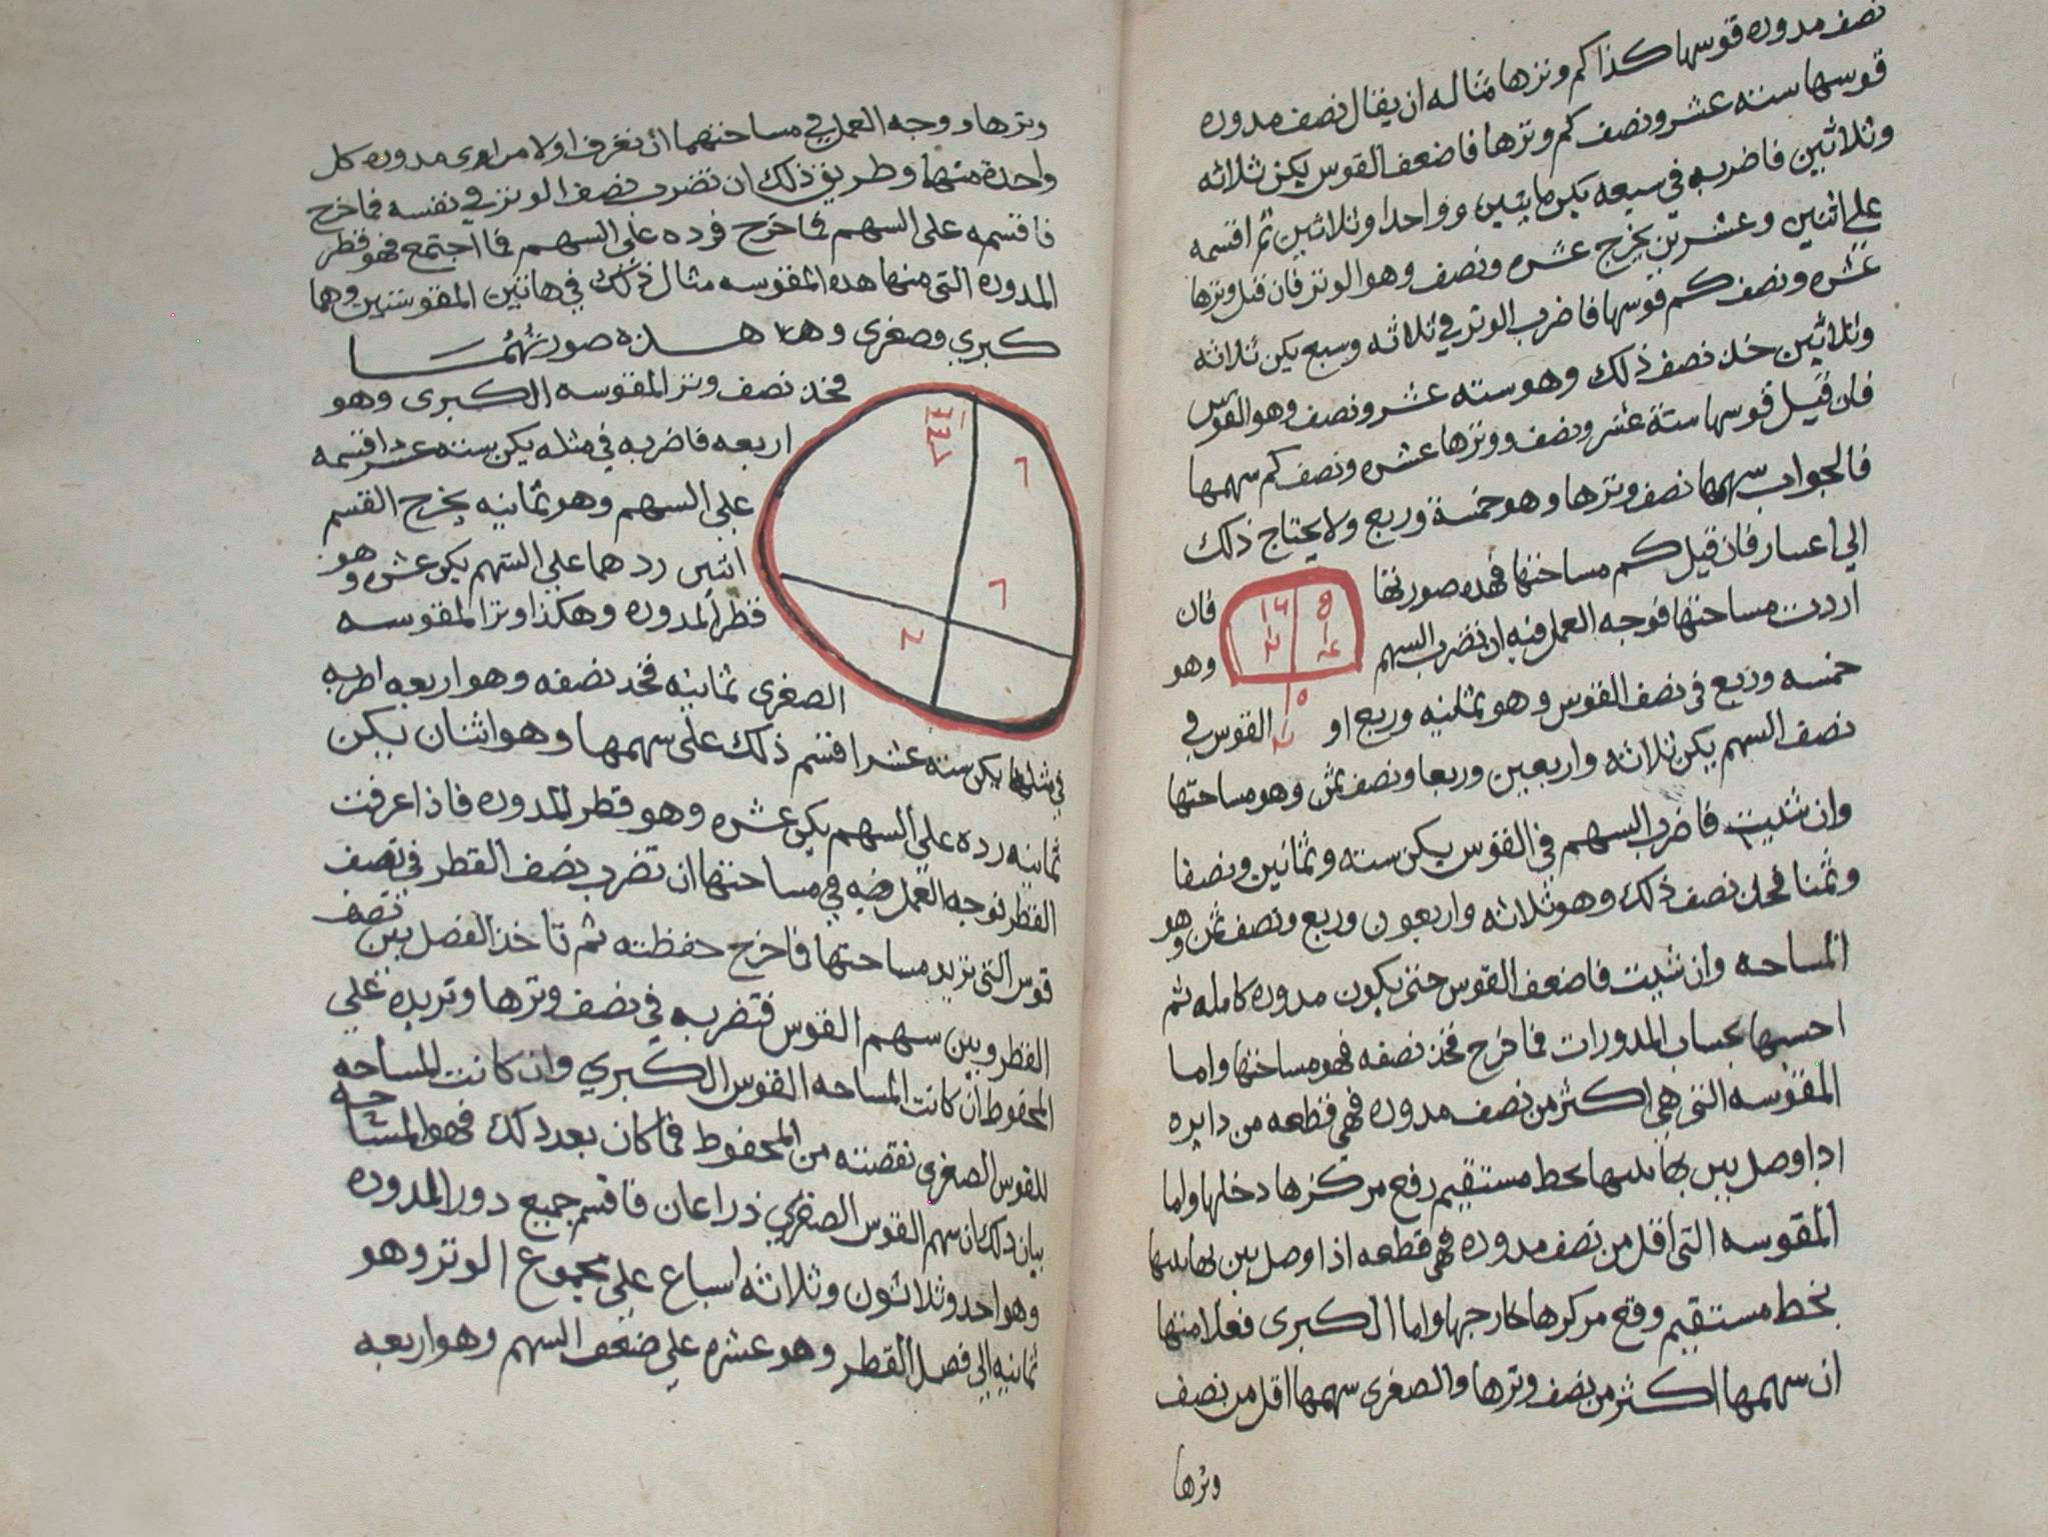 نصف مدوره قوسها كذا كم وترها مثاله ان يقال نصف مدوره
قوسها سته عشر ونصف كم وترها فاضعف القوس يكن ثلاثه
وثلاثين فاضربه في سبعه يكن مايتين وواحدا وثلاثين ثم اقسمه
على اثنين وعشرين يخرج عشره ونصف وهو الوتر فان قيل وترها
عشره ونصف كم قوسها فاضرب الوتر في ثلاثه وسبع يكن ثلاثه
وثلاثين خذ نصف ذلك وهو سته عشر ونصف وهو القوس
فان قيل قوسها ستة عشر ونصف ووترها عشره ونصف كم سهمها
فالجواب سهمها نصف وترها وهو خمسة وربع ولا يحتاج ذلك
الي اعسار فان قيل كم مساحتها فهذه صورتها فان
اردت مساحتها فوجه العمل فيه ان تضرب السهم وهو
خمسه وربع في نصف القوس وهو ثمانيه وربع او القوس في
نصف السهم يكن ثلاثه واربعين وربعا ونصف ثمن وهو مساحتها
وان شيت فاضرب السهم في القوس يكن سته وثمانين ونصفا
وثمنا فخذ نصف ذلك وهو ثلاثه واربعون وربع ونصف ثمن وهو
المساحه وان شيت فاضعف القوس حتى يكون مدوره كامله ثم
احسبها بحساب المدورات فما خرج فخذ نصفه فهو مساحتها واما
المقوسه التي هي اكثر من نصف مدوره فهي قطعه من دايره
اذا وصل بين بخط مستقيم وقع مركزها دخلها واما
المقوسه التي اقل من نصف مدوره فهي قطعه اذا وصل بين
بخط مستقيم وقع مركزها خارجها واما الكبرى فعلامتها
ان سهمها اكثر من نصف وترها والصغرى سهمها اقل من نصف
وترها
وترها ووجه العمل في مساحتهما ان تعرف اولا من اي مدوره كل
واحدة منهما وطريق ذلك ان تضرب نصف الوتر في نفسه فما خرج
فاقسمه على السهم فما خرج فرده على السهم فما اجتمع فهو قطر
المدوره التي منها هذه المقوسه مثال ذلك في هاتين المقوستين وهما
كبري وصغرى وهذه صورتهما
فخذ نصف وتر المقوسه الكبرى وهو
اربعه فاضربه في مثله يكن سته عشر اقسمه
علي السهم وهو ثمانيه يخرج القسم
اثنين ردهما علي السهم يكن عشره وهو
قطر المدوره وهكذا وتر المقوسه
الصغرى ثمانيه فخذ نصفه وهو اربعه اضربه
في مثلها يكن سته عشر اقسم ذلك على سهمها وهو اثنان يكن
ثمانيه رده على السهم يكن عشره وهو قطر المدوره فاذا عرفت
القطر فوجه العمل فيه في مساحتها ان تضرب نصف القطر في نصف
قوس التي تريد مساحتها فما خرج حفظته ثم تاخذ الفضل بين نصف
القطر وبين سهم القوس فتضربه في نصف وترها وتزيده علي
المحفوظ ان كانت المساحه القوس الكبري وان كانت المساحه
للقوس الصغرى نقصته من المحفوظ فما كان بعد ذلك فهو المساحه
بيان ذلك ان سهم القوس الصغرى ذراعان فاقسم جميع دور المدوره
وهو احد وثلاثون وثلاثه اسباع علي مجموع الوتر وهو
ثمانيه الي فضل القطر وهو عشره علي ضعف السهم وهو اربعه